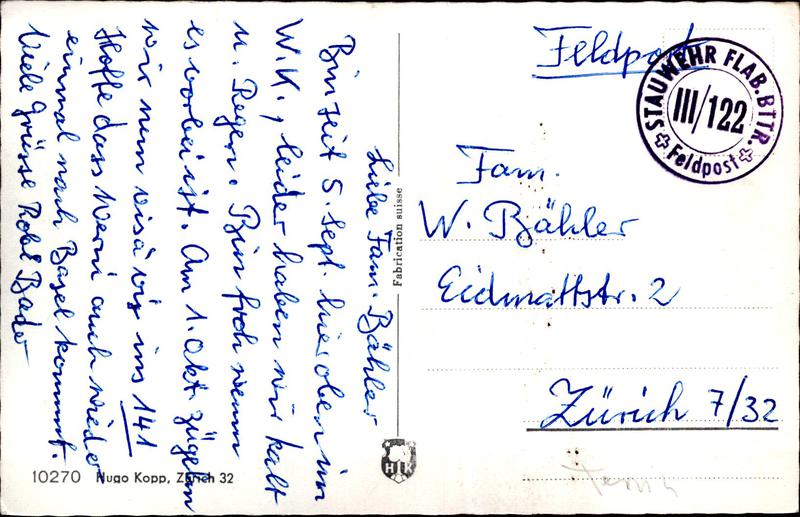 Liebe Fam. Bähler
Bin seit 5. Sept. hier oben im
W.K., leider haben wir kalt
u. Regen. Bin froh wenn
es vorbei ist. Am 1. Okt. zügeln
wir nun visà viz ins 141
Hoffe dass Werni auch wieder
einmal nach Basel kommt.
Viele Grüsse Robt Bader
Fabrication suisse
HK
10270 Hugo Kopp, Zürich 32
Feldpost
STAUWEHR FLAB.BTTR.
III/122
Feldpost
Fam.
W. Bähler
Eidmattstr. 2
Zürich 7/32